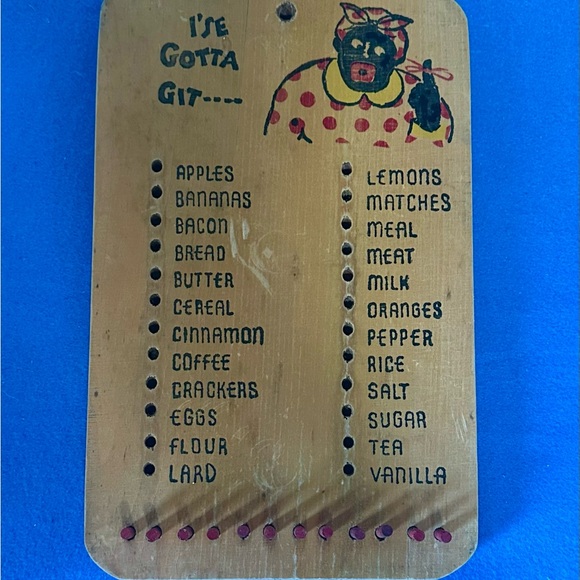 I'SE
GOTTA
GIT----
APPLES
BANANAS
BACON
BREAD
BUTTER
CEREAL
CINNAMON
COFFEE
CRACKERS
EGGS
FLOUR
LARD
LEMONS
MATCHES
MEAL
MEAT
MILK
ORANGES
PEPPER
RICE
SALT
SUGAR
TEA
VANILLA